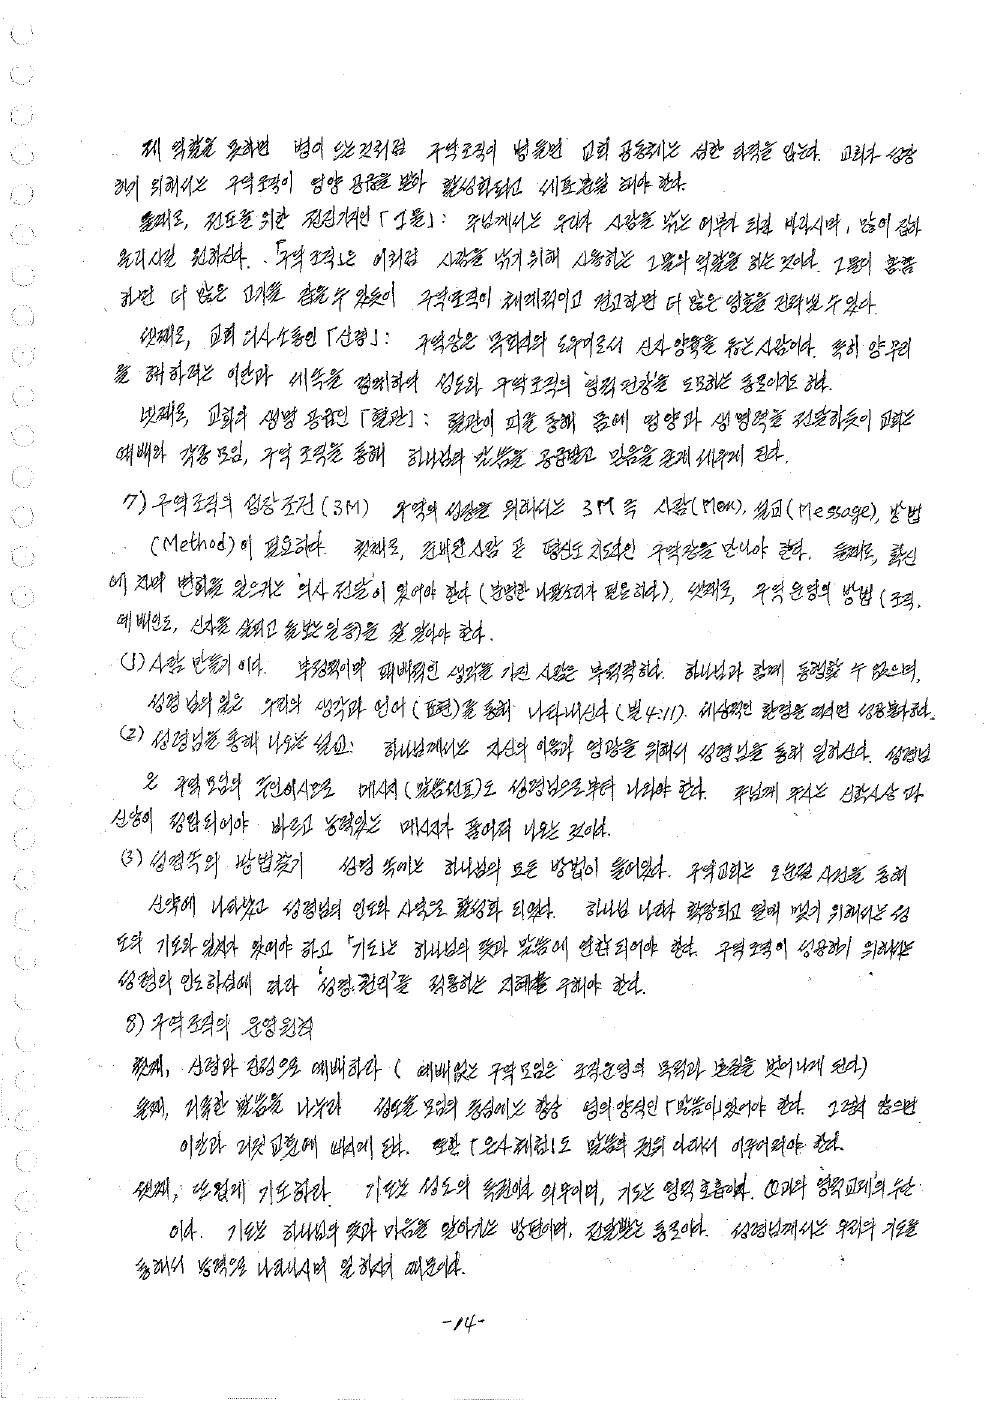 제 역할을 못하면 병이 드는것처럼 구역조직이 병들면 교회 공동체는 심한 타격을 입는다. 교회가 성장
하기 위해서는 구역조직이 영양 공급을 받아 활성화되고 세포 분열을 해야 한다.
둘째로, 전도를 위한 전진기지인 「그물」: 주님께서는 우리가 사람을 낚는 어부가 되길 바라시며, 많이 잡아
올리시길 원하신다. 「구역 조직」은 이처럼 사람을 낚기 위해 사용하는 그물의 역할을 하는 것이다. 그물이 촘촘
하면 더 많은 고기를 잡을 수 있듯이 구역조직이 체계적이고 견고하면 더 많은 영혼을 건져낼 수 있다.
셋째로, 교회 의사소통인 「신경」: 구역장은 목회자의 도우미로서 신자 양육을 돕는 사람이다. 특히 양 무리
를 해하려는 이단과 세속을 경계하여 성도와 구역조직의 '영적 건강'을 도모하는 통로이기도 하다.
넷째로, 교회의 생명 공급인 「혈관」: 혈관이 피를 통해 몸에 영양과 생명력을 전달하듯이 교회는
예배와 각종 모임, 구역 조직을 통해 하나님의 말씀을 공급받고 믿음을 굳게 세우게 된다.
7) 구역조직의 성장 조건 (3M) 구역의 성장을 위해서는 3M 즉 사람(Men), 설교(Message), 방법
(Method)이 필요하다. 첫째로, 준비된 사람 곧 평신도 지도자인 구역장을 만나야 한다. 둘째로, 확신
에 차며 변화를 일으키는 '의사 전달'이 있어야 한다 (분명한 나팔소리가 필요하다). 셋째로, 구역 운영의 방법 (조직,
예배인도, 신자를 살피고 돌보는 일 등)을 잘 알아야 한다.
(1) 사람 만들기 이다. 부정적이며 패배적인 생각을 가진 사람은 무력하다. 하나님과 함께 동행할 수 없으며,
성령님의 일은 우리의 생각과 언어 (표현)를 통해 나타내신다 (빌 4:11). 세상적인 환경을 따르면 성공불가하다.
(2) 성령님을 통해 나오는 설교: 하나님께서는 자신의 이름과 영광을 위해서 성령님을 통해 일하신다. 성령님
은 구역 모임의 주인이시므로 메시지 (말씀선포)도 성령님으로부터 나와야 한다. 주님께 주시는 신학사상과
신앙이 정립되어야 바르고 능력있는 메시지가 흘러져 나오는 것이다.
(3) 성경속의 방법찾기 성경 속에는 하나님의 모든 방법이 들어있다. 구역교회는 오순절 사건을 통해
신약에 나타났고 성령님의 인도와 사역으로 활성화 되었다. 하나님 나라가 확장되고 열매 맺기 위해서는 성
도의 기도와 일치가 있어야 하고 「기도」는 하나님의 뜻과 말씀에 연합되어야 한다. 구역조직이 성공하기 위해서는
성령의 인도하심에 따라 '성경 진리'를 적용하는 지혜를 구해야 한다.
8) 구역조직의 운영원칙
첫째, 신령과 진정으로 예배하라 ( 예배없는 구역 모임은 조직운영의 목적과 본질을 벗어나게 된다)
둘째, 거룩한 말씀을 나누라 성도들 모임의 중심에는 항상 영의 양식인 「말씀이」 있어야 한다. 그렇지 않으면
이단과 거짓 교훈에 빠지게 된다. 또한 「은사 체험」도 말씀의 권위 아래서 이루어져야 한다.
셋째, 뜨겁게 기도하라 기도는 성도의 특권이자 의무이며, 기도는 영적 호흡이다. 영적교제의 수단
이다. 기도는 하나님의 뜻과 마음을 알아가는 방편이며, 전달받는 통로이다. 성령님께서는 우리의 기도를
통해서 능력으로 나타나시며 일하시기 때문이다.
-14-